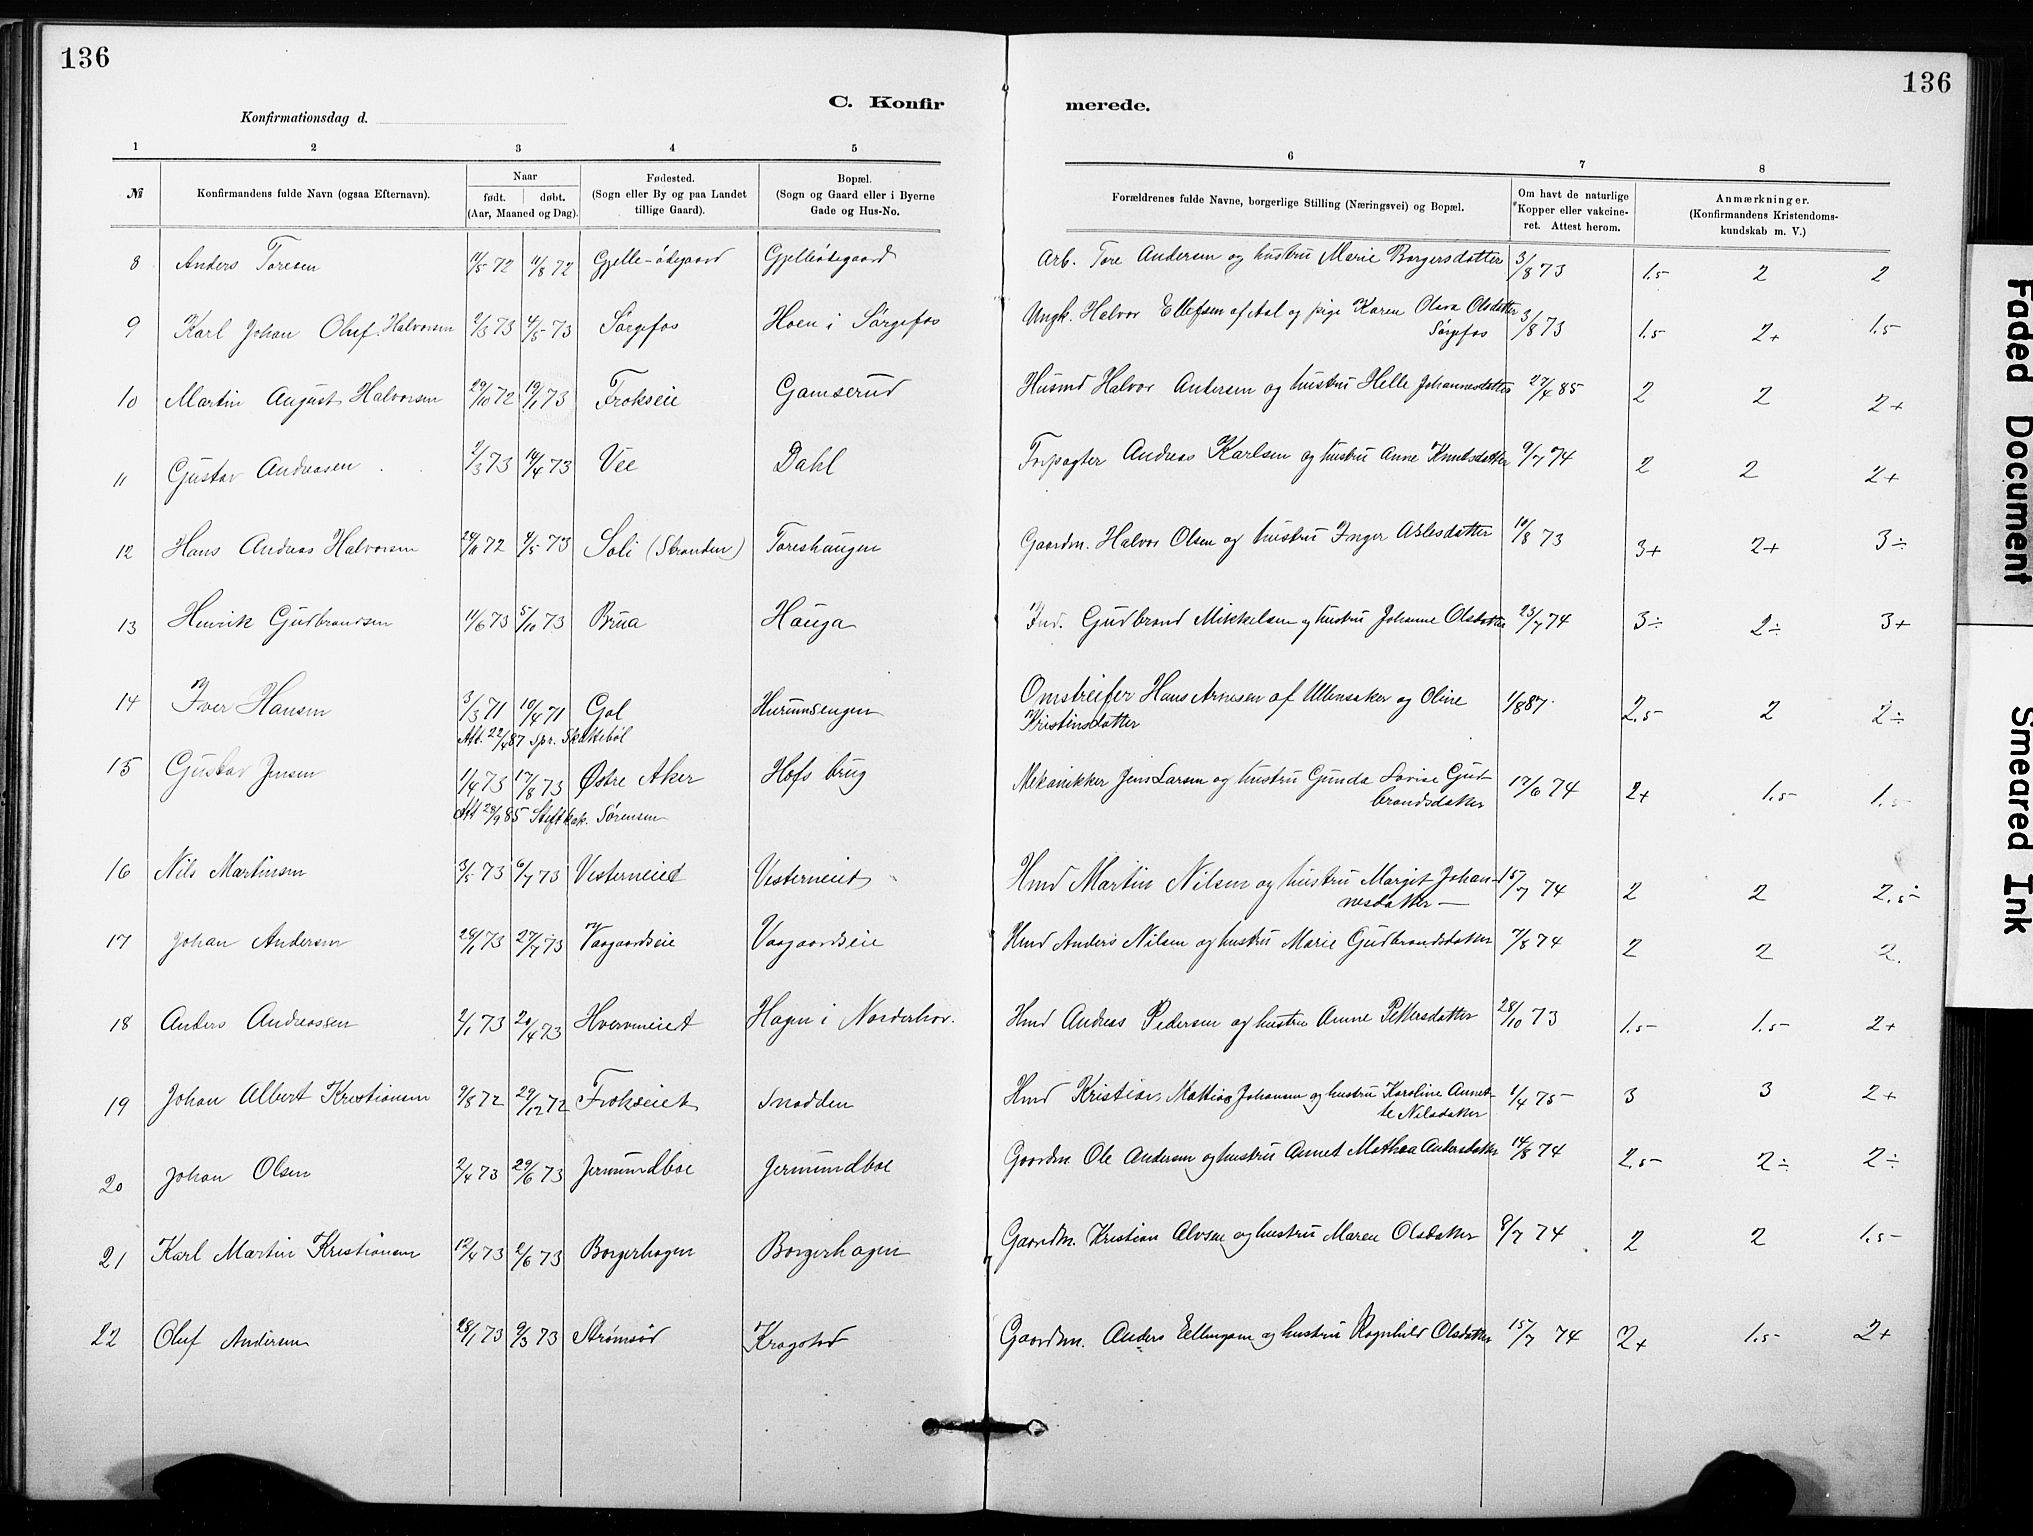 136
136
C. Konfir merede.
Konfirmationsdag d.
1 2 3 4 5 6 7 8
№ Konfirmandens fulde Navn (ogsaa Efternavn). Naar født. døbt. (Aar, Maaned og Dag). Fødested. (Sogn eller By og paa Landet tillige Gaard). Bopæl. (Sogn og Gaard eller i Byerne Gade og Hus-No. Forældrenes fulde Navne, borgerlige Stilling (Næringsvei) og Bopæl. Om havt de naturlige Kopper eller vakcineret. Attest herom. Anmærkninger. (Konfirmandens Kristendomskundskab m. V.)
8 Anders Toresen 11/5 72 11/8 72 Gjelle-ødegaard Gjelleødegaard Arb. Tore Andersen og hustru Marie Borgersdatter 3/8 73 1.5 2 2
9 Karl Johan Oluf Halvorsen 2/3 73 4/5 73 Sørgefos Hoen i Sørgefos Ungk. Halvor Ellefsen af Aal og pige Karen Olava Olsdatter 3/8 73 1.5 2+ 1.5
Sørgfos
10 Martin August Halvorsen 29/10 72 19/1 73 Frokseie Gamserud Husmd Halvor Andersen og hustru Helle Johannesdatter 27/4 85 2 2 2+
11 Gustav Andreasen 2/3 73 14/4 73 Vee Dahl Andreas Karlsen og hustru Anne Knutsdatter 9/7 74 2 2 2+
12 Hans Andreas Halvorsen 72 4/5 73 Soli (Stranden) Toreshaugen Gaardm. Halvor Olsen og hustru Inger Aslesdatter 10/8 73 3+ 2+ 3÷
13 Henrik Gudbrandsen 11/6 73 5/10 73 Brua Hauga Ind. Gudbrand Mikkelsen og hustru Johanne Olsdatter 23/7 74 3÷ 2÷ 3+
14 Iver Hansen 3/3 71 10/4 71 Gol Hurumsengen Omstreifer Hans Arnesen af Ullensaker og Oline 1/8 87 2.5 2 2÷
Att. 22/4 87 spr. Skattebøl Kristinsdatter
15 Gustav Jensen 1/4 73 17/8 73 Østre Aker Hofs brug Mekanikker Jens Larsen og hustru Gunda Lovise Gud- 17/6 74 2+ 1.5 1.5
Att 28/9 85 Stiftskak. Sørensen brandsdatter
16 Nils Martinsen 3/5 73 6/7 73 Vesterneiet Vesterneiet Hmd Martin Nilsen og hustru Margit Johan- 15/7 74 2 2 2.5÷
nesdatter —
17 Johan Andersen 28/1 73 27/7 73 Vaagaardseie Vaagaardseie Hmd Anders Nilsen og hustru Marie Gudbrandsdatter 7/8 74 2 2 2.
18 Anders Andreassen 2/1 73 20/4 73 Hvervneiet Hagen i Norderhov. Hmd Andreas Pedersen og hustru Anne Pettersdatter 28/10 73 1.5 1.5 2+
19 Johan Albert Kristiansen 9/8 72 29/12 72 Frokseiet Snadden Hmd Kristian Mattias Johansen og hustru Karoline Annet- 1/4 75 3 3 2+
te Nilsdatter
20 Johan Olsen 2/4 73 29/6 73 Jermundboe Jermundboe Gaardm. Ole Andersen og hustru Annet Mathea Andersdatter 14/8 74 2.5 2÷ 2÷
21 Karl Martin Kristiansen 12/4 73 2/6 73 Borgerhagen Borgerhagen Gaardm. Kristian Alvsen og hustru Maren Olsdatter 8/7 74 2 2 1.5
22 Oluf Andersen 28/1 73 9/3 73 Strømsød Kragstad Gaardm. Anders Ellingsen og hustru Ragnhild Olsdatter 15/7 74 2+ 1.5 2+
Faded Document
Smeared Ink